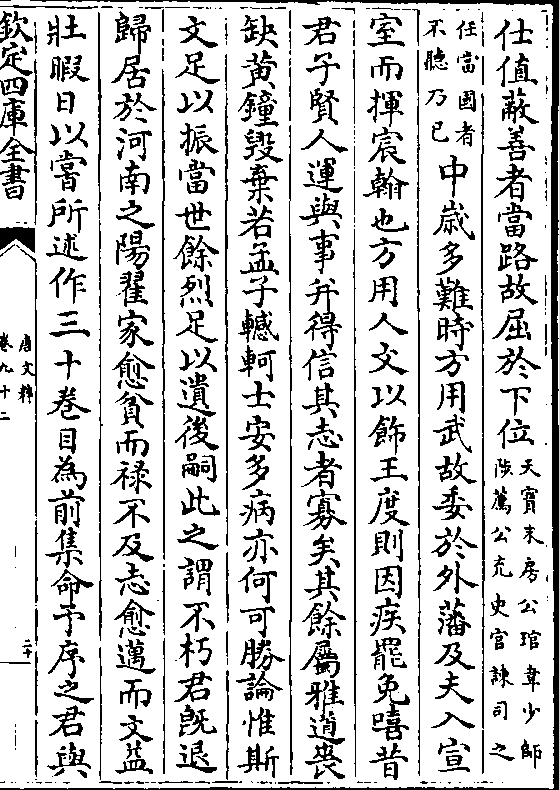 仕值蔽善者當路故屈於下位天寳末房公琯韋少師
陟薦公充史官諫司之
任當國者
不聽乃已中歳多難時方用武故委於外藩及夫入宣
室而揮宸翰也方用人文以飾王度則因疾罷免嘻昔
君子賢人運與事并得信其志者寡矣其餘屬雅道喪
缺黄鐘毀棄若孟子轗軻士安多病亦何可勝論惟斯
文足以振當世餘烈足以遺後嗣此之謂不朽君既退
歸居於河南之陽翟家愈貧而祿不及志愈邁而文益
壯暇日以嘗所述作三十卷目為前集命予序之君與
欽定四庫全書
唐文粹
卷九十二
二十